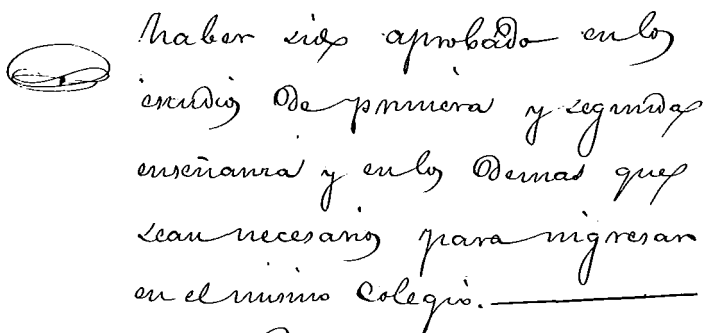 haber sido aprobado en los
estudios de primera y segunda
enseñanza y en los demas que
sean necesarios para ingresar
en el mismo Colegio.